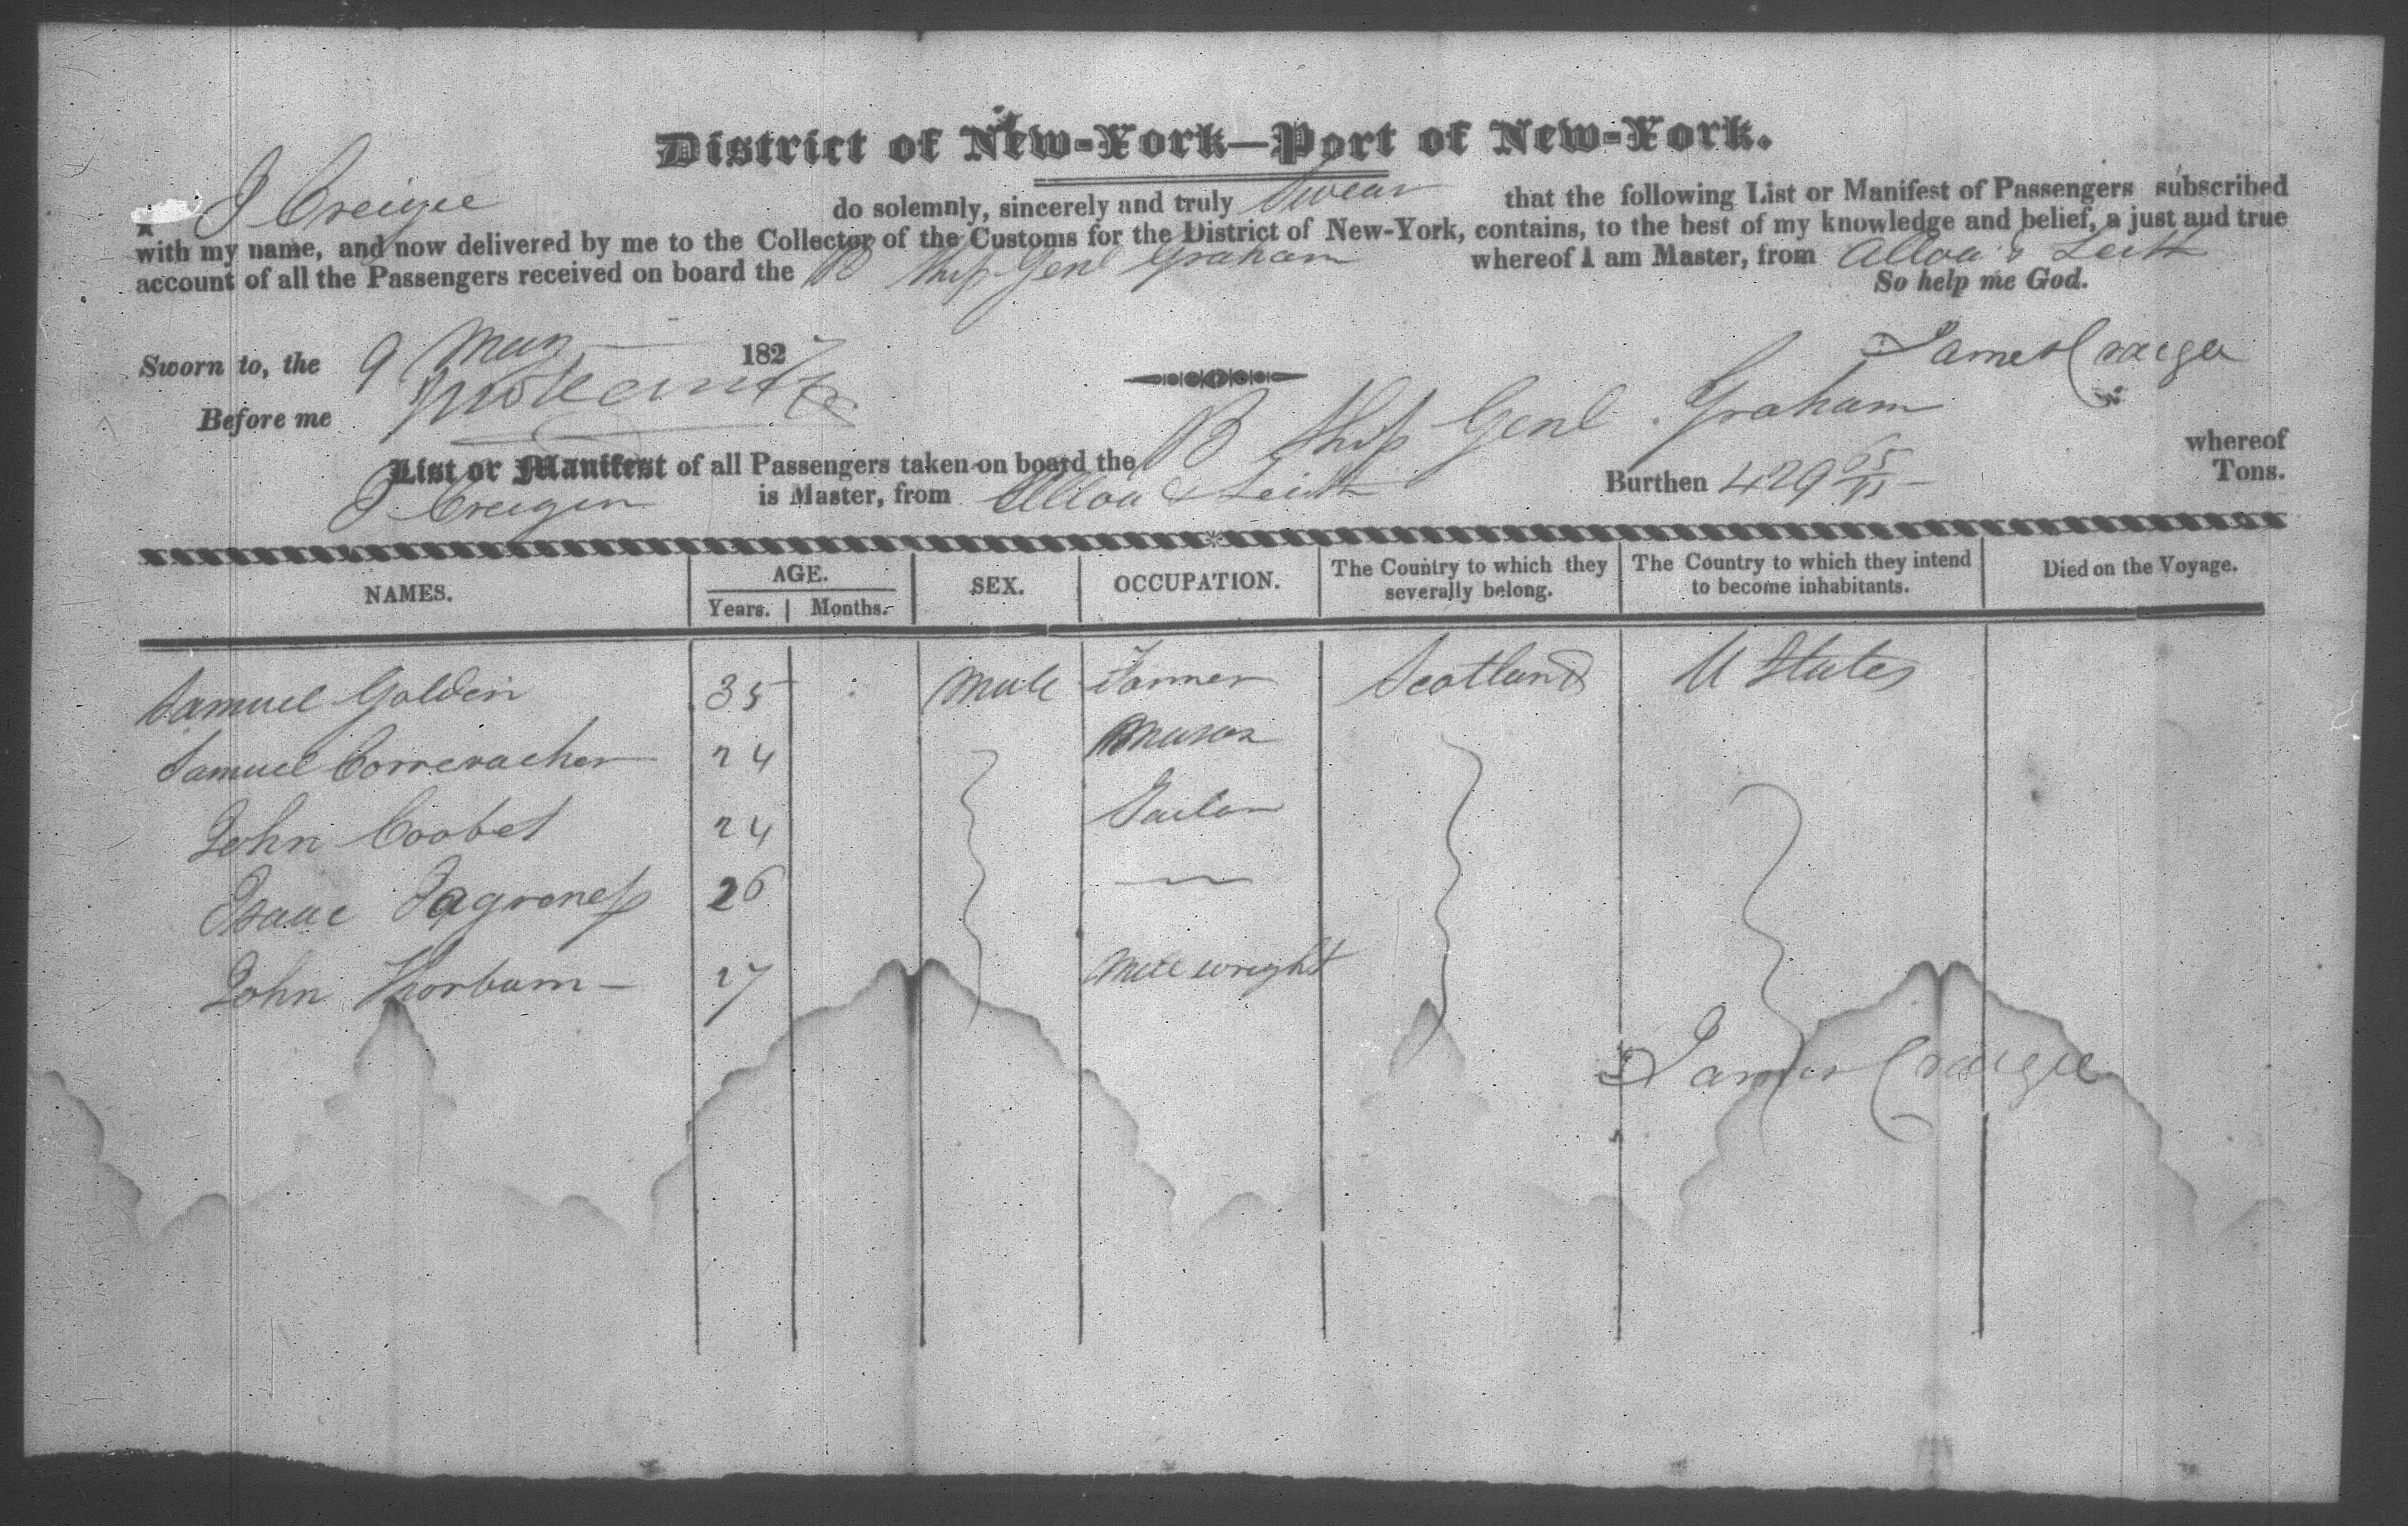 District of New-York—Port of New-York.
I J Creigie do solemnly, sincerely and truly Swear that the following List or Manifest of Passengers subscribed
with my name, and now delivered by me to the Collector of the Customs for the District of New-York, contains, to the best of my knowledge and belief, a just and true
account of all the Passengers received on board the B Ship Genl Graham whereof I am Master, from Alloa & Leith
So help me God.
Sworn to, the 9 May 1827
James Craigie
Before me
List or Manifest of all Passengers taken on board the B Ship Genl Graham whereof
J Creigen is Master, from Alloa & Leith Burthen 429 65/95 Tons.
NAMES. AGE. Years. Months. SEX. OCCUPATION. The Country to which they severally belong. The Country to which they intend to become inhabitants. Died on the Voyage.
Samuel Golden 35 Male Farmer Scotland U States
Samuel 24 Mason
John Coobet 24 Tailor
Isaac 26 —
John Thorburn 27 Mill wright
James Craigie